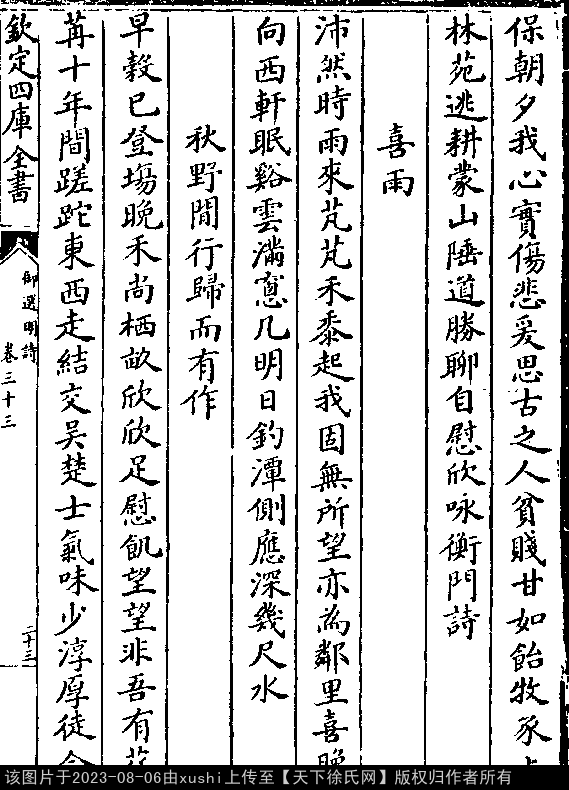 保朝夕我心實傷悲爰思古之人貧賤甘如飴牧豕上
林苑逃耕蒙山陲道勝聊自慰欣咏衡門詩
喜雨
沛然時雨來芃芃禾黍起我固無所望亦為鄰里喜晚
向西軒眠谿雲滿窻几明日釣潭側應深幾尺水
秋野閒行歸而有作
早穀已登場晚禾尚栖畝欣欣足慰飢望望非吾有荏
苒十年間蹉跎東西走結交吳楚士氣味少淳厚徒令
欽定四庫全書
御選明詩
卷三十三
二十三
该图片于2023-08-06由xushi上传至【天下徐氏网】版权归作者所有